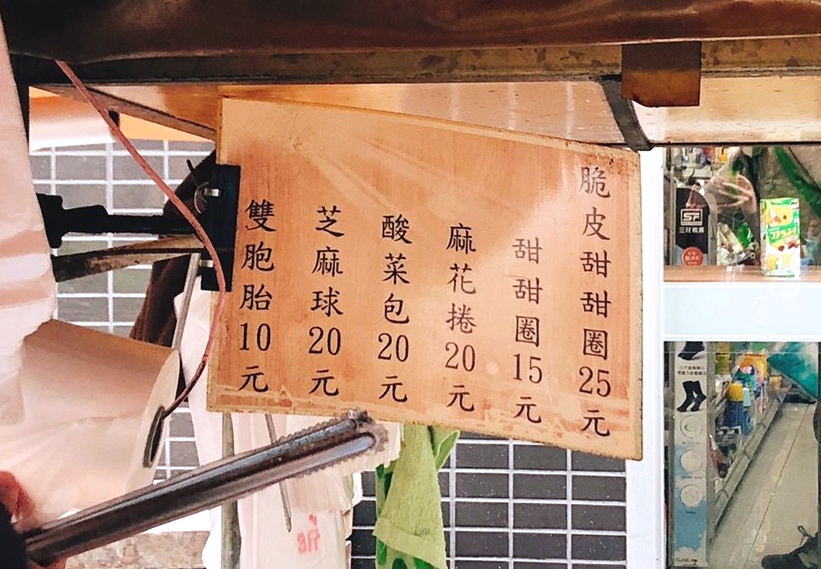 脆皮甜甜圈25元
甜甜圈15元
麻花捲20元
酸菜包20元
芝麻球20元
雙胞胎10元